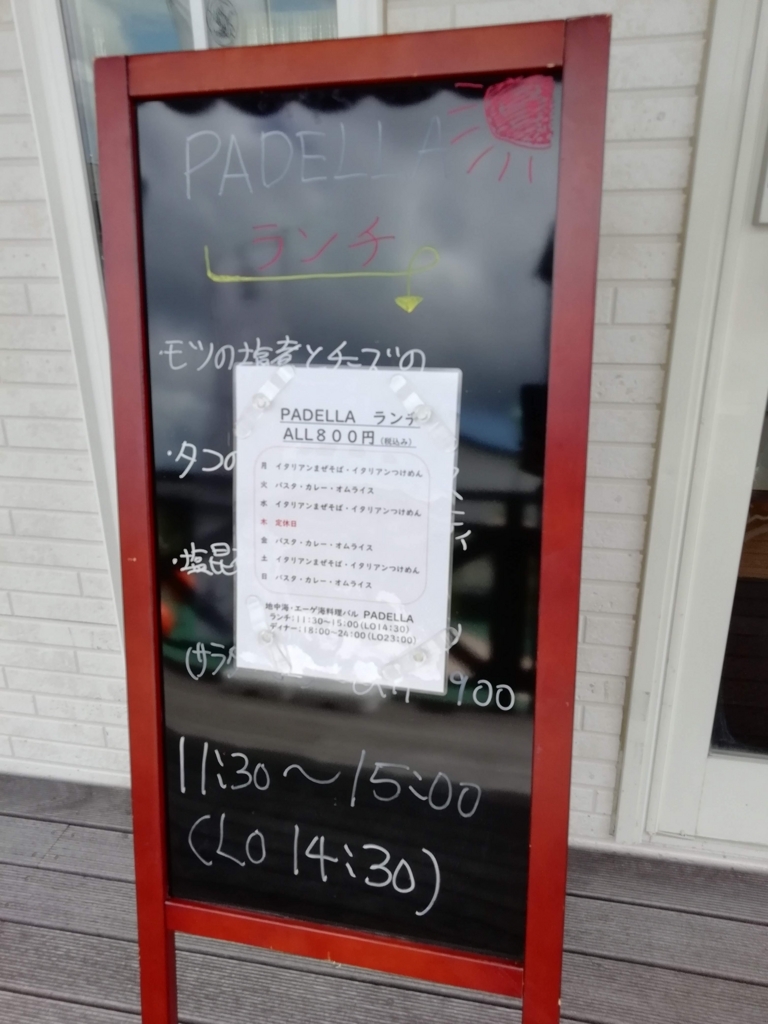 PADELLA
ランチ
モツの塩煮とチーズの
PADELLA ランチ
ALL800円(税込み)
月 イタリアンまぜそば・イタリアンつけめん
火 パスタ・カレー・オムライス
水 イタリアンまぜそば・イタリアンつけめん
木 定休日
金 パスタ・カレー・オムライス
土 イタリアンまぜそば・イタリアンつけめん
日 パスタ・カレー・オムライス
地中海・エーゲ海料理バル PADELLA
ランチ:11:30~15:00(LO14:30)
ディナー:18:00~24:00(LO23:00)
・タコの
・塩昆
(サラ
900
11:30~15:00
(LO 14:30)